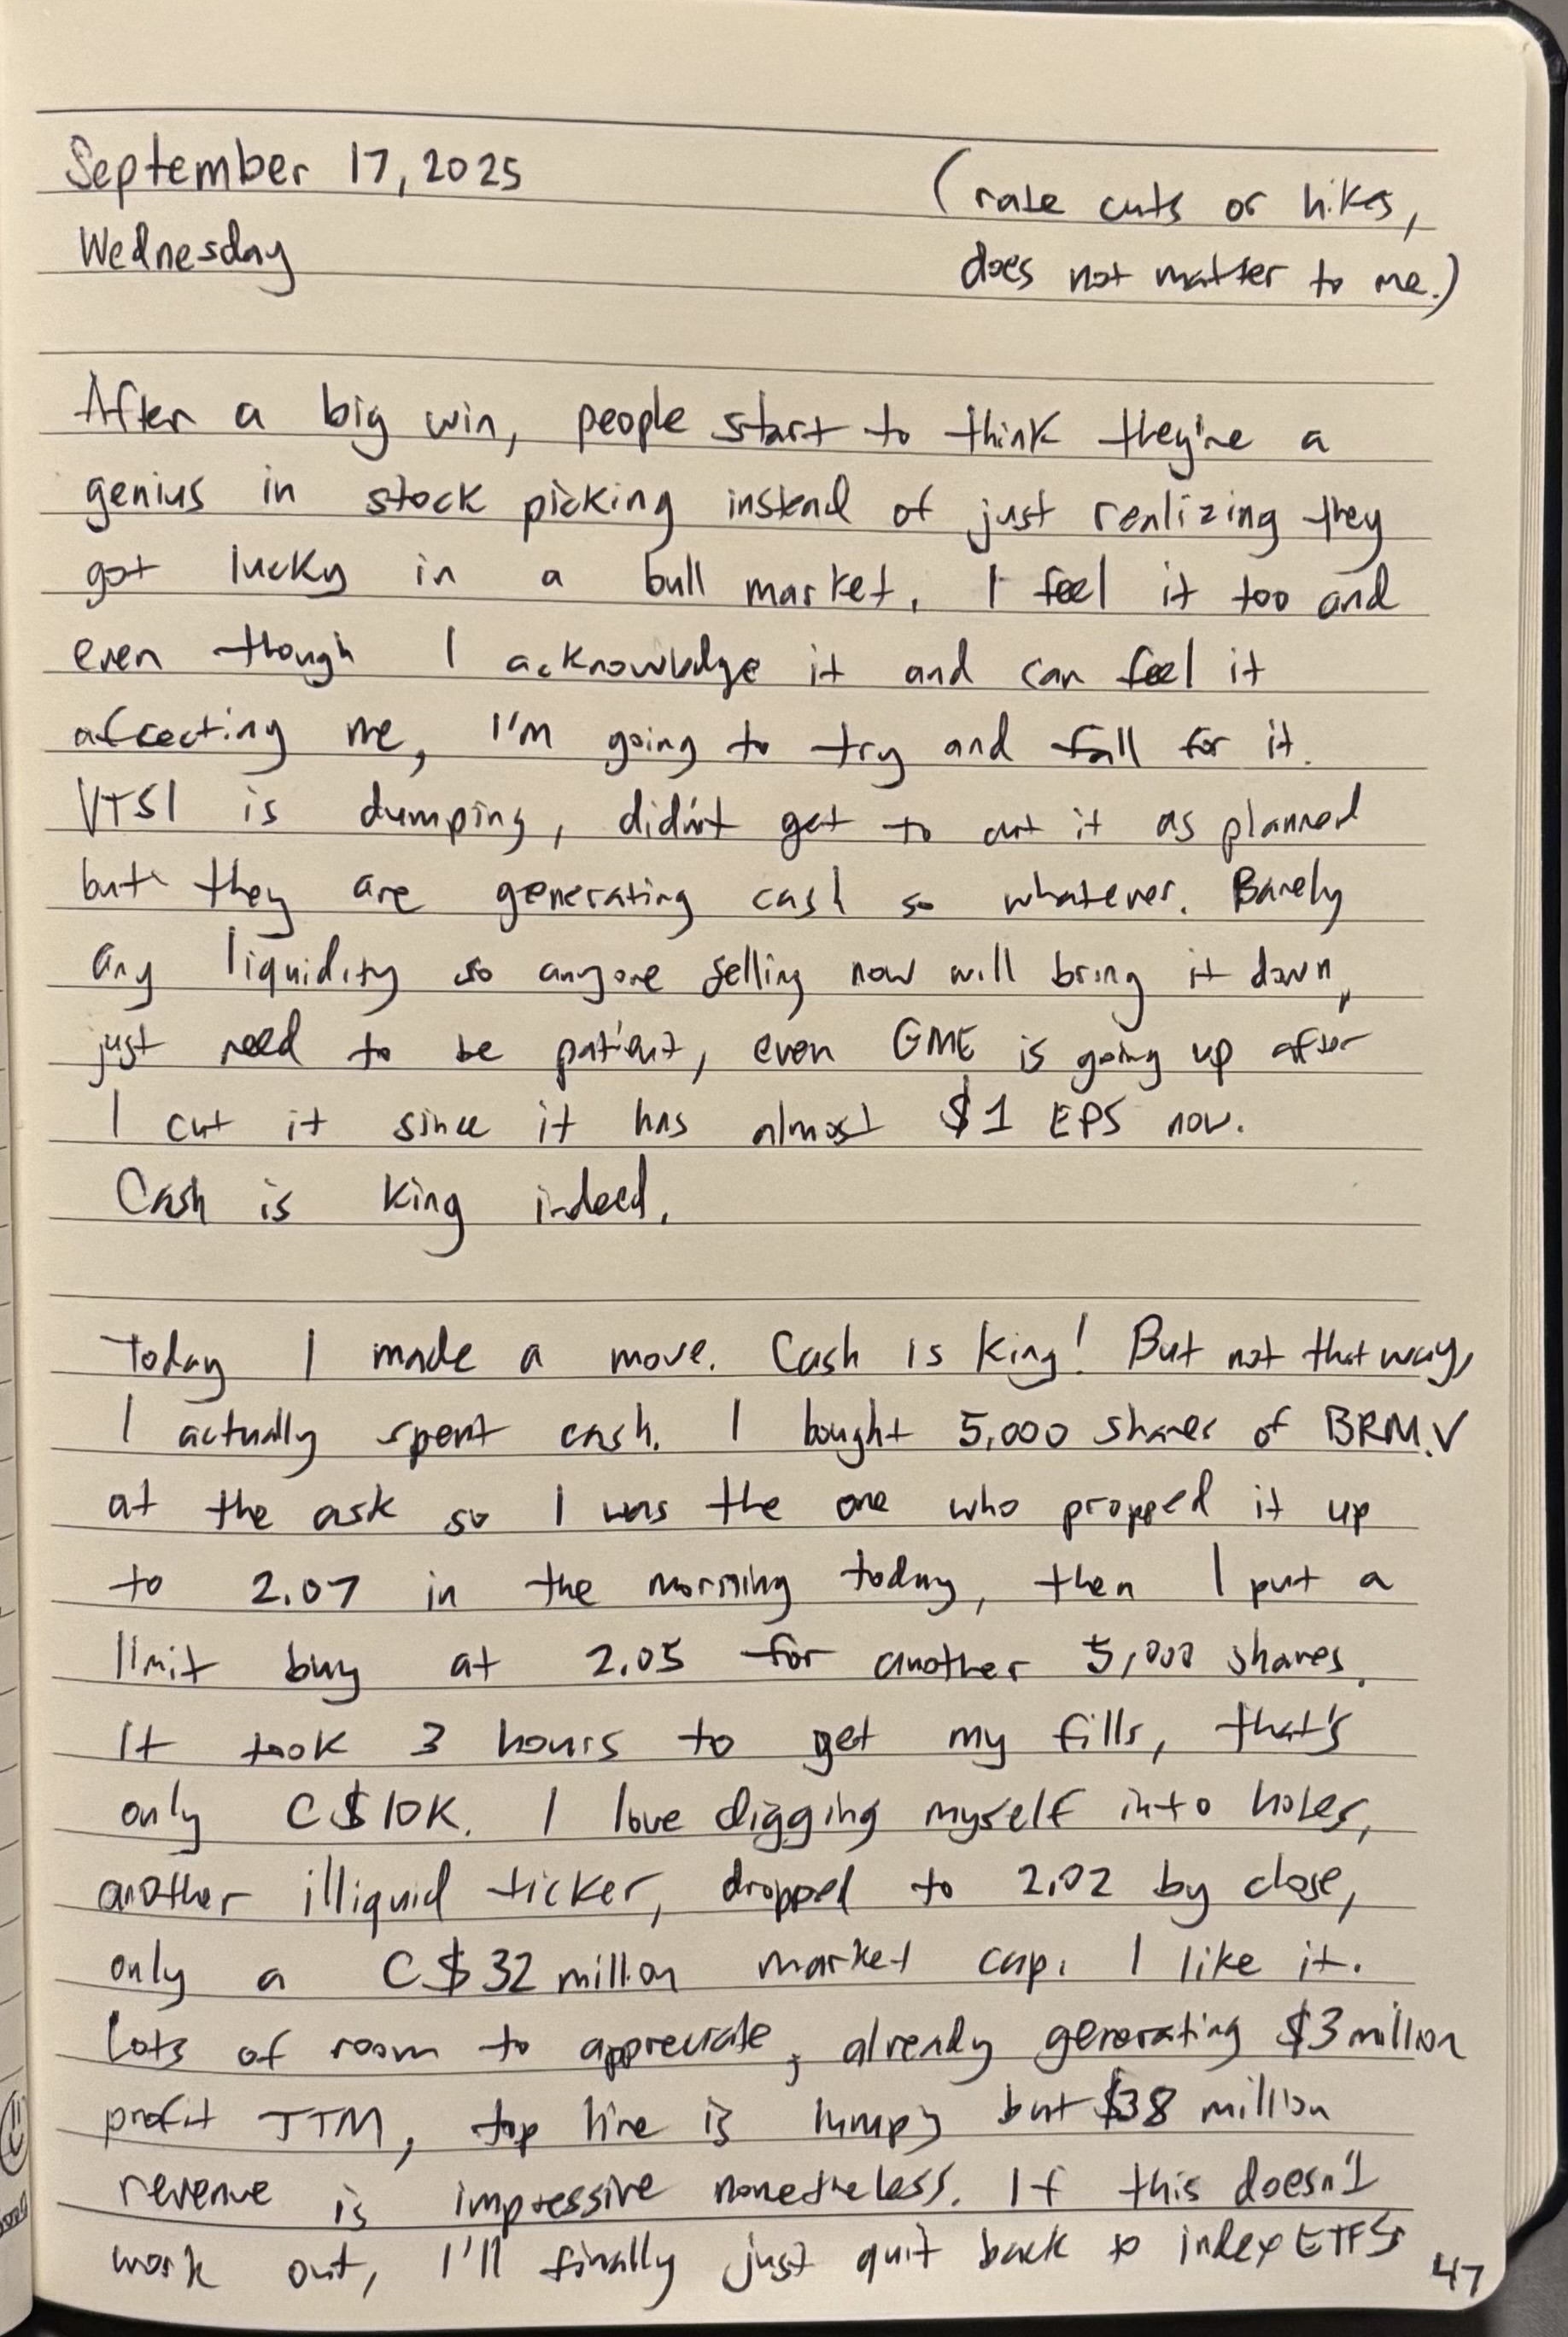 September 17, 2025
(rate cuts or hikes,
Wednesday
does not matter to me.)
After a big win, people start to think they're a
genius in stock picking instead of just realizing they
got lucky in a bull market. I feel it too and
even though I acknowledge it and can feel it
affecting me, I'm going to try and fall for it.
VTSI is dumping, didn't get to cut it as planned
but they are generating cash so whatever. Barely
any liquidity so anyone selling now will bring it down,
just need to be patient, even GME is going up after
I cut it since it has almost $1 EPS now.
Cash is king indeed.
Today I made a move. Cash is king! But not that way,
I actually spent cash. I bought 5,000 shares of BRM.V
at the ask so I was the one who propped it up
to 2.07 in the morning today, then I put a
limit buy at 2.05 for another 5,000 shares.
It took 3 hours to get my fills, that's
only C$10K. I love digging myself into holes,
another illiquid ticker, dropped to 2.02 by close,
only a C$32 million market cap. I like it.
Lots of room to appreciate, already generating $3 million
profit TTM, top line is lumpy but $38 million
revenue is impressive nonetheless. If this doesn't
work out, I'll finally just quit back to index ETFs
47